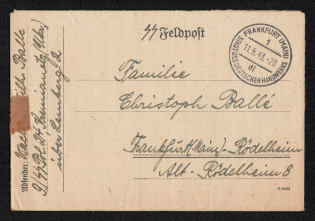 ᛋᛋ Feldpost
FRANKFURT (MAIN)
1
11.6.43.-20
STADT DES DEUTSCHEN HANDWERKS
Familie
Christoph Ballé
Frankfurt (Main)-Rödelheim
Alt-Rödelheim 8
Absender:
über Lemberg 2